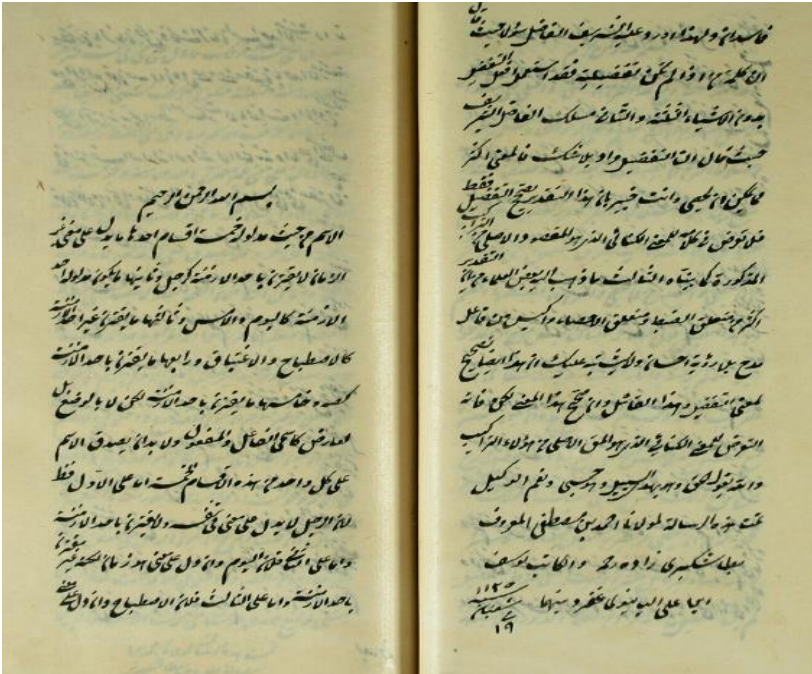 فاسدان ولهذا اورد عليه الشريف الفاضل سؤلا حيث قال
ان كلمة من اذا لم تكن تفضيلية فقد استعمل افعل التفضيل
بدون الاشياء الثلثة والثانى مسلك الفاضل الشريف
حيث قال ان التفضيل واويلا فالمعنى اكثر
وانت خبير بان هذا التقدير يصحح التفضيل فقط
للمعنى الكنائى الذى هو المقصد والاصلى من التراكيب
المذكورة كما بيناه الثالث ما ذهب اليه بعض العلماء من ان التقدير
اكثر من متعلق الضبط ومتعلق الاحصاء
بلا رؤية احسان ولا يشتبه عليك ان هذا ايضا تصحيح
لمعنى التفضيل وهذا القائل وان صحح هذا المعنى لكن فاته
التعرض للمعنى الكنائى الذى هو المق الاصلى من هؤلاء التراكيب
والله يقول الحق وهو يهدى السبيل وهو حسبى ونعم الوكيل
تمت هذه الرسالة لمولانا احمد بن مصطفى المعروف
بطاشكبرى زاده رحمه والكاتب يوسف
ابن على غفر
١١٣٥
سنة
شعبان
١٩
بسم الله الرحمن الرحيم
الاسم من حيث مدلوله خمسة اقسام احدها ما يدل على معنى غير
الزمان لا يقترن باحد الازمنة كرجل وثانيها ما يكون مدلوله احد
الازمنة كاليوم والامس وثالثها ما يقترن غير احد الازمنة
كالاصطباح والاغتباق ورابعها ما يقترن باحد الازمنة
كصه وخامسها ما يقترن باحد الازمنة لكن لا بالوضع بل
لعارض كاسمى الفاعل والمفعول ولا بد ان يصدق الاسم
على كل واحد من هذه الاقسام الخمسة اما على الاول فظ
لان الرجل لا يدل على معنى فى نفسه ولا يقترن باحد الازمنة
واما على الثانى فلان اليوم وان دل على معنى هو زمان لكنه غير مقترن
باحد الازمنة واما على الثالث فلان الاصطباح وان دل على معنى